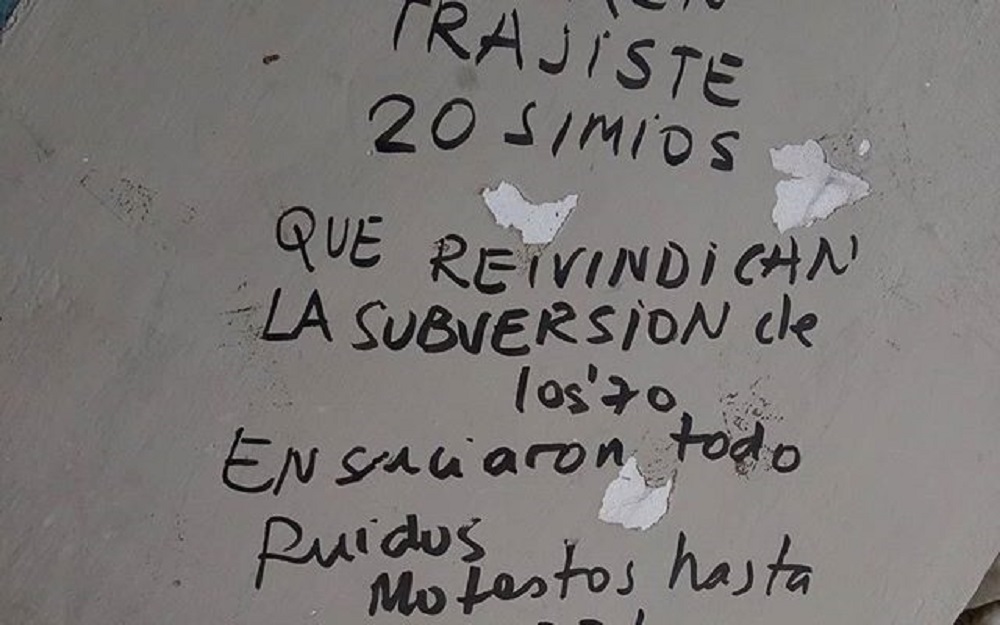 TRAJISTE
20 SIMIOS
QUE REIVINDICAN
LA SUBVERSION de
los '70,
ENsuciaron todo
Ruidos
Molestos hasta